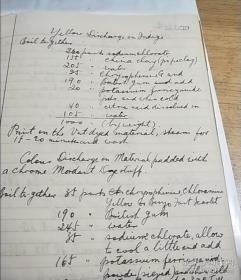 Yellow Discharge on Indigo
Boil together
200 parts sodium chlorate
150 " china clay (pipeclay)
205 " water
35 " Chrysophenine G and
190 " British gum and add
20 " potassium ferrocyanide
when cold
40 " citric acid dissolved in
105 " water
1000 (by weight)
Print on the Vat dyed material, steam for
15-20 minutes and wash
Colour Discharge on Material padded with
a chrome Mordant
Boil together 35 parts Chrysophenine, Chloramine
Yellow
190 " British gum
245 " water
85 " sodium chlorate, allow
to cool a little and add
165 " potassium ferrocyanide
and when cold